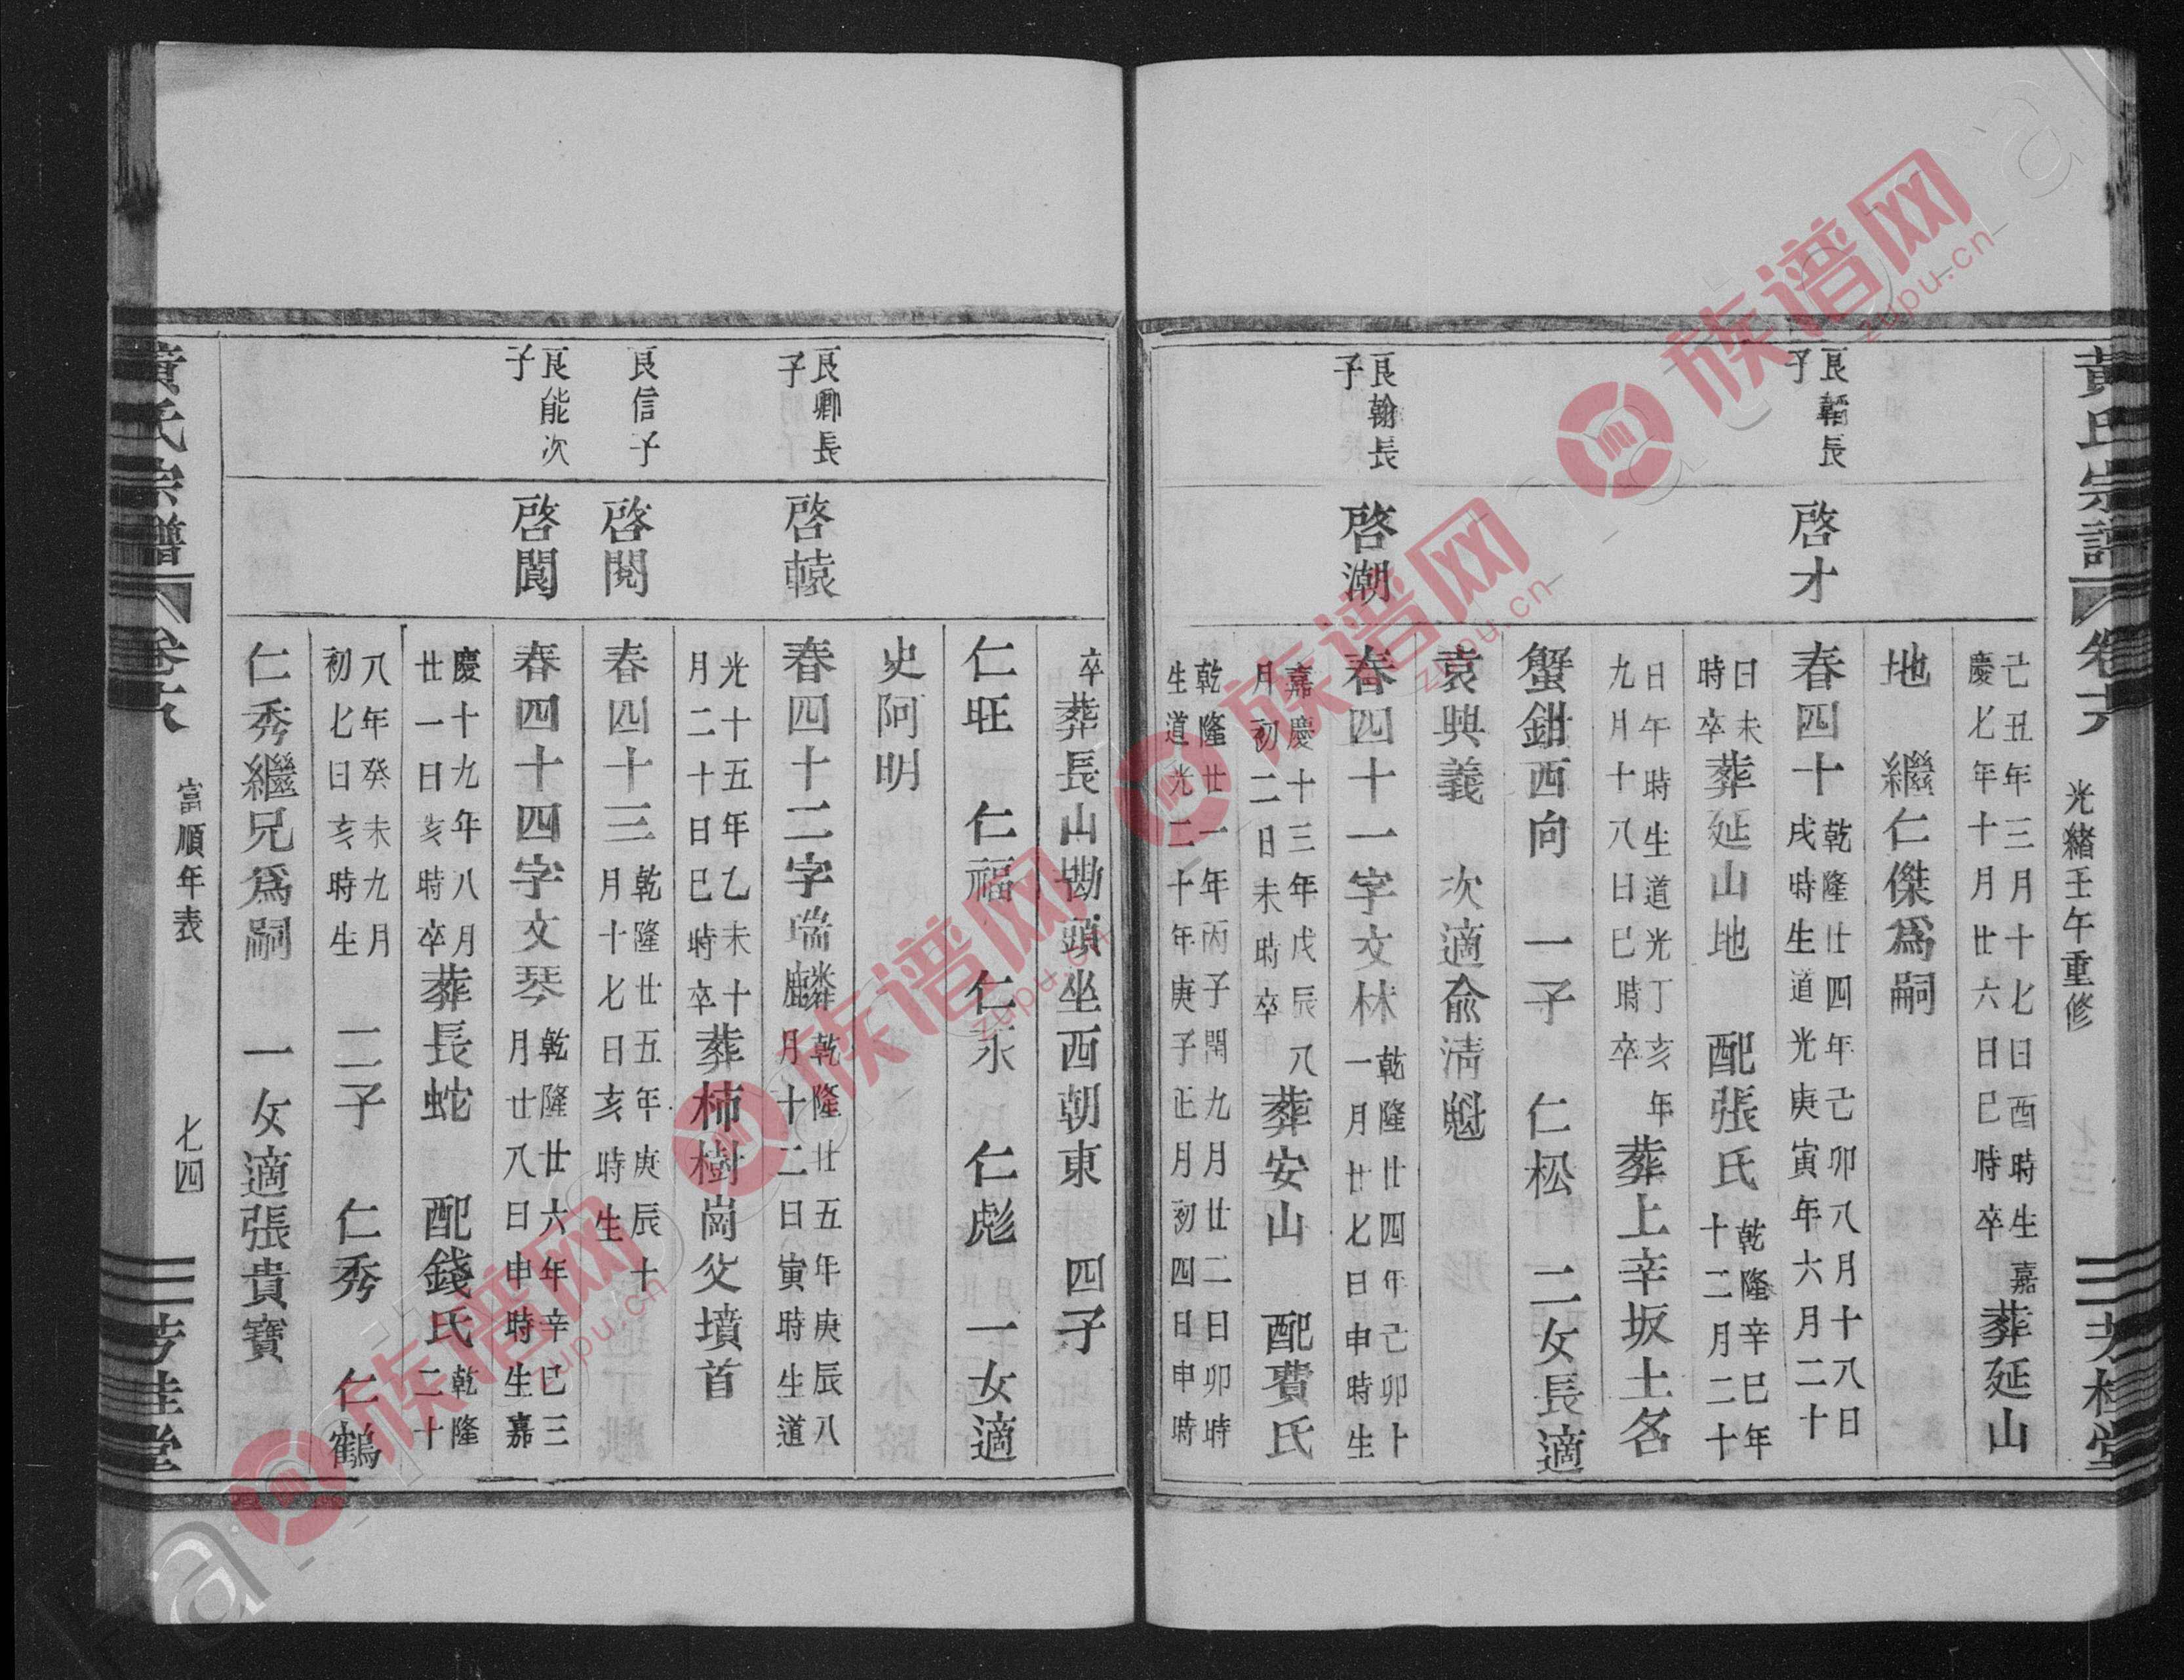 黃氏宗譜 卷六 光緒壬午重修 芳桂堂
己丑年三月十七日酉時生嘉
慶七年十月廿六日巳時卒 葬延山
地 繼仁傑爲嗣
良韜長
子
啓才
春四十 乾隆廿四年己卯八月十八日
戌時生道光庚寅年六月二十
日未
時卒 葬延山地 配張氏 乾隆辛巳年
十二月二十
日午時生道光丁亥年
九月十八日巳時卒 葬上辛坂土名
蟹鉗西向 一子 仁松 二女長適
袁興義 次適兪淸魁
良翰長
子
啓潮
春四十一字文林 乾隆廿四年己卯十
一月廿七日申時生
嘉慶十三年戊辰八
月初二日未時卒 葬安山 配費氏
乾隆廿一年丙子閏九月廿二日卯時
生道光二十年庚子正月初四日申時
卒葬長山墈頭坐西朝東 四子
仁旺 仁福 仁永 仁彪 一女適
史阿明
良卿長
子
啓轅
春四十二字瑞麟 乾隆廿五年庚辰八
月十二日寅時生道
光十五年乙未十
月二十日巳時卒 葬柿樹崗父墳首
良信子
啓閱
春四十三 乾隆廿五年庚辰十
月十七日亥時生
良能次
子
啓閬
春四十四字文琴 乾隆廿六年辛巳三
月廿八日申時生嘉
慶十九年八月
廿一日亥時卒 葬長蛇 配錢氏 乾隆
二十
八年癸未九月
初七日亥時生 二子 仁秀 仁鶴
仁秀繼兄爲嗣 一女適張貴寶
黃氏宗譜 卷六 富順年表 七四 芳桂堂